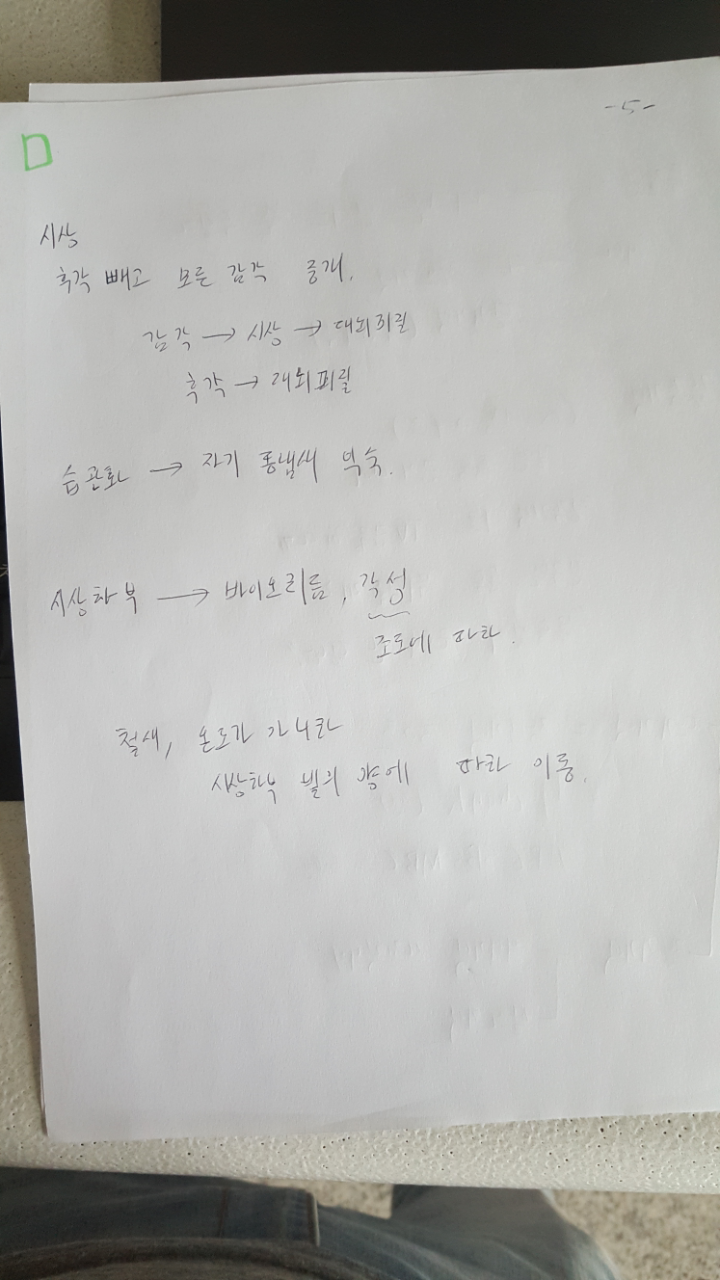 -5-
시상
후각 빼고 모든 감각 중개.
감각 → 시상 → 대뇌피질
후각 → 대뇌피질
습관화 → 자기 똥냄새 익숙.
시상하부 → 바이오리듬, 각성
조도에 따라.
철새, 온도가 아니라
시상하부 빛의 양에 따라 이동.